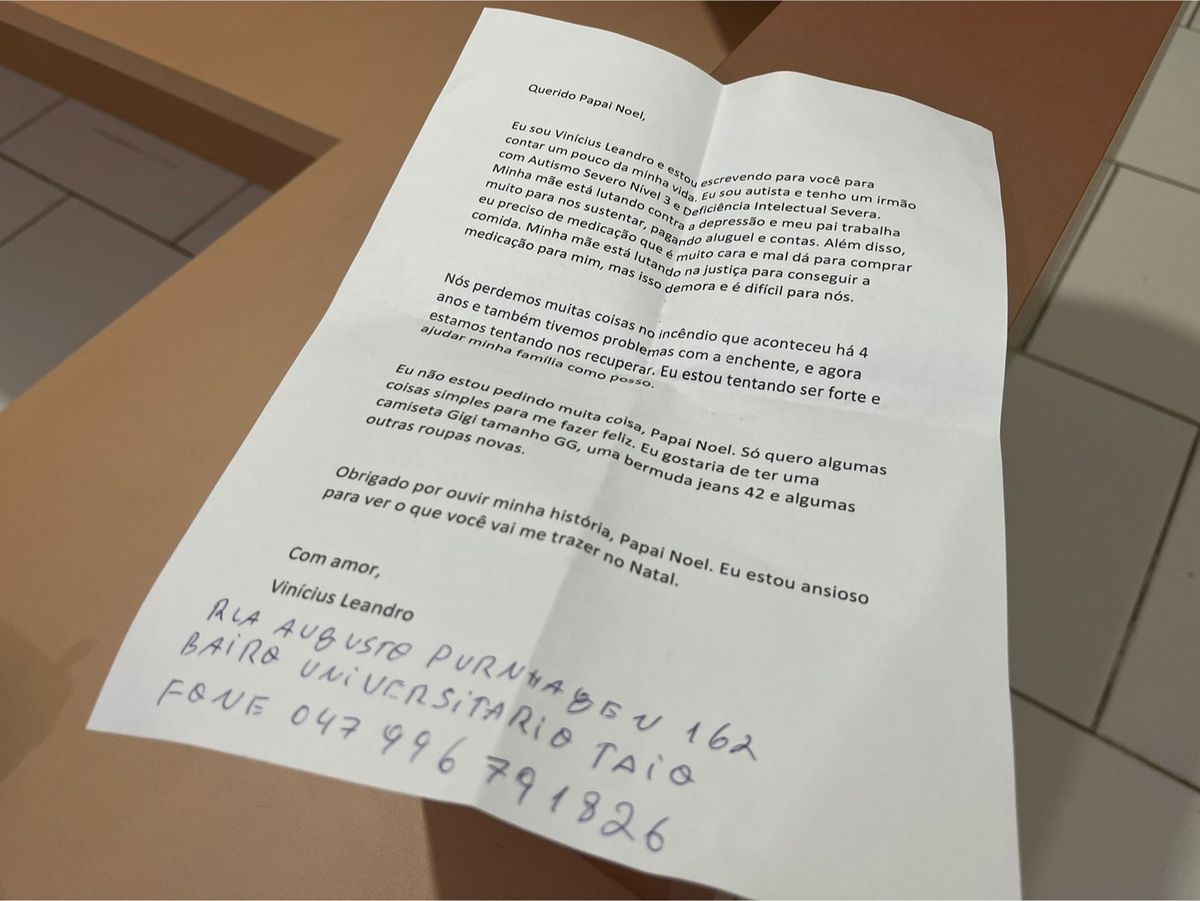 Querido Papai Noel,
Eu sou Vinícius Leandro e estou escrevendo para você para
contar um pouco da minha vida. Eu sou autista e tenho um irmão
com Autismo Severo Nível 3 e Deficiência Intelectual Severa.
Minha mãe está lutando contra a depressão e meu pai trabalha
muito para nos sustentar, pagando aluguel e contas. Além disso,
eu preciso de medicação que é muito cara e mal dá para comprar
comida. Minha mãe está lutando na justiça para conseguir a
medicação para mim, mas isso demora e é difícil para nós.
Nós perdemos muitas coisas no incêndio que aconteceu há 4
anos e também tivemos problemas com a enchente, e agora
estamos tentando nos recuperar. Eu estou tentando ser forte e
ajudar minha família como posso.
Eu não estou pedindo muita coisa, Papai Noel. Só quero algumas
coisas simples para me fazer feliz. Eu gostaria de ter uma
camiseta Gigi tamanho GG, uma bermuda jeans 42 e algumas
outras roupas novas.
Obrigado por ouvir minha história, Papai Noel. Eu estou ansioso
para ver o que você vai me trazer no Natal.
Com amor,
Vinícius Leandro
RUA AUGUSTO PURNHAGEN 162
BAIRO UNIVERSITARIO TAIO
FONE 047 996 791826